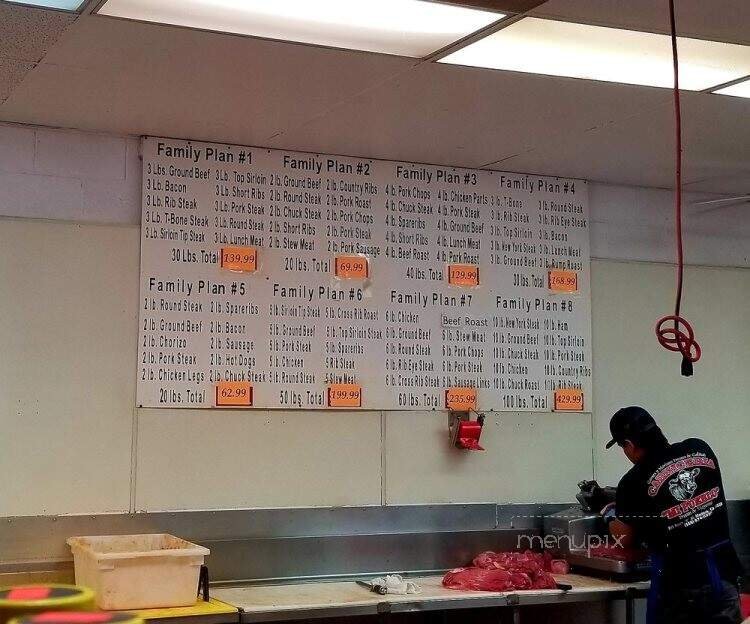 Family Plan #1
3 Lbs. Ground Beef 3 Lb. Top Sirloin
3 Lb. Bacon 3 Lb. Short Ribs
3 Lb. Rib Steak 3 Lb. Pork Steak
3 Lb. T-Bone Steak 3 Lb. Round Steak
3 Lb. Sirloin Tip Steak 3 Lb. Lunch Meat
30 Lbs. Total 139.99
Family Plan #2
2 lb. Ground Beef 2 lb. Country Ribs
2 lb. Round Steak 2 lb. Pork Roast
2 lb. Chuck Steak 2 lb. Pork Chops
2 lb. Short Ribs 2 lb. Pork Steak
2 lb. Stew Meat 2 lb. Pork Sausage
20 lbs. Total 69.99
Family Plan #3
4 lb. Pork Chops 4 lb. Chicken Parts
4 lb. Chuck Steak 4 lb. Pork Steak
4 lb. Spareribs 4 lb. Ground Beef
4 lb. Short Ribs 4 lb. Lunch Meat
4 lb. Beef Roast 4 lb. Pork Roast
40 lbs. Total 129.99
Family Plan #4
3 lb. T-Bone 3 lb. Round Steak
3 lb. Rib Steak 3 lb. Rib Eye Steak
3 lb. Top Sirloin 3 lb. Bacon
3 lb. New York Steak 3 lb. Lunch Meat
3 lb. Ground Beef 3 lb. Rump Roast
30 lbs. Total 168.99
Family Plan #5
2 lb. Round Steak 2 lb. Spareribs
2 lb. Ground Beef 2 lb. Bacon
2 lb. Chorizo 2 lb. Sausage
2 lb. Pork Steak 2 lb. Hot Dogs
2 lb. Chicken Legs 2 lb. Chuck Steak
20 lbs. Total 62.99
Family Plan #6
5 lb. Sirloin Tip Steak 5 lb. Cross Rib Roast
5 lb. Ground Beef 5 lb. Top Sirloin Steak
5 lb. Pork Steak 5 lb. Spareribs
5 lb. Chicken 5 lb. Rib Steak
5 lb. Round Steak 5 lb. Stew Meat
50 lbs. Total 199.99
Family Plan #7
6 lb. Chicken Beef Roast
6 lb. Ground Beef 6 lb. Stew Meat
6 lb. Pork Steak 6 lb. Pork Chops
6 lb. Rib Eye Steak 6 lb. Pork Steak
6 lb. Cross Rib Steak 6 lb. Sausage Links
60 lbs. Total 235.99
Family Plan #8
10 lb. New York Steak 10 lb. Ham
10 lb. Ground Beef 10 lb. Top Sirloin
10 lb. Chuck Steak 10 lb. Pork Steak
10 lb. Chicken 10 lb. Country Ribs
10 lb. Chuck Roast 10 lb. Rib Steak
100 lbs. Total 429.99
"MI PUEBLO"
menupix